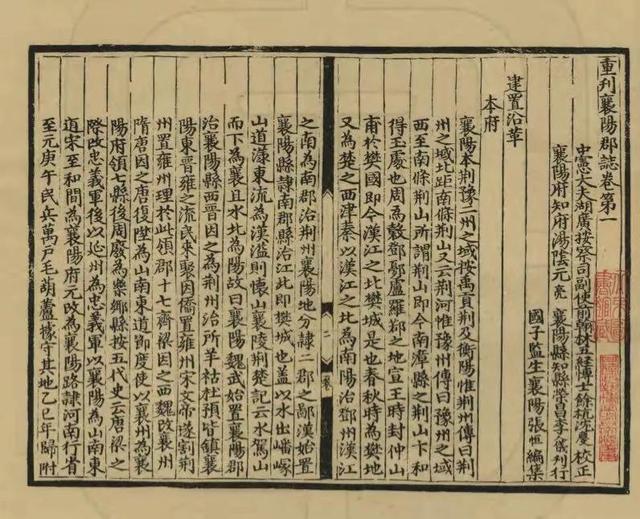 重刊襄陽郡誌卷第一
中憲大夫湖廣按察司副使前翰林五經博士餘杭沈慶校正
襄陽府知府湯陰元亮 襄陽縣知縣榮昌李儀刊行
國子監生襄陽張恒編集
建置沿革
本府
襄陽本荊豫二州之域按禹貢荊及衡陽惟荊州傳曰荊
州之域北距南條荊山又云荊河惟豫州傳曰豫州之域
西至南條荊山所謂荊山即今南漳縣之荊山卞和
得玉處也周為穀鄧鄾盧羅鄀之地宣王時封仲山
甫於樊國即今漢江之北樊城是也春秋時為樊地
後為楚之西津秦以漢江之北為南陽治鄧州漢江
之南為南郡治荊州襄陽地分隷二郡之鄙漢始置
襄陽縣隷南郡縣治江北即樊城也盖以水出嶓冢
山道漾東流為漢滋則懷山襄陵荊楚記云水駕山
而下為襄且水北為陽故曰襄陽 魏武始置襄陽郡
治襄陽縣西晉因之為荊州治所羊祜杜預皆鎮襄
陽東晉雍之流民來聚因僑置雍州宋文帝遂割荊
州置雍州理於此領郡十七齊梁因之西魏改襄州
隋唐因之唐復陞為山南東道節度使以襄州為襄
陽府領七縣後周廢為樂鄉縣按五代史云唐梁之
際改忠義軍後以延州為忠義軍以襄陽為山南東
道宋至和間為襄陽府元改為襄陽路隷河南行省
至元庚午民兵萬戶毛葫蘆據守其地乙巳年歸附